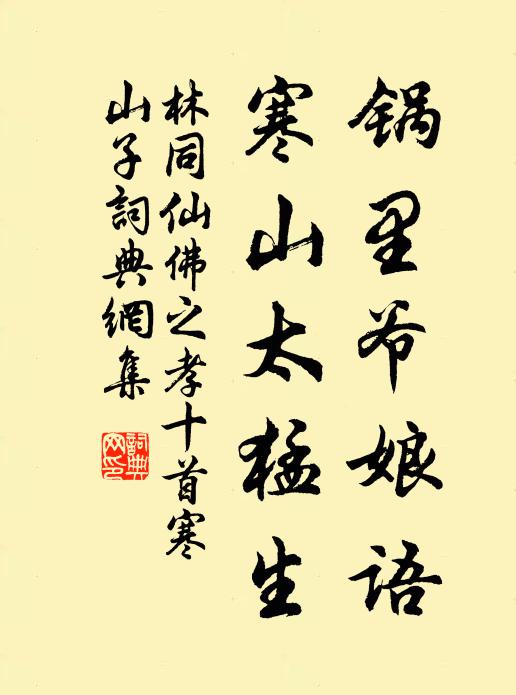 锅里爷娘语
寒山太猛生
林同仙佛之孝十首寒
山子詞典網集
詞典網印